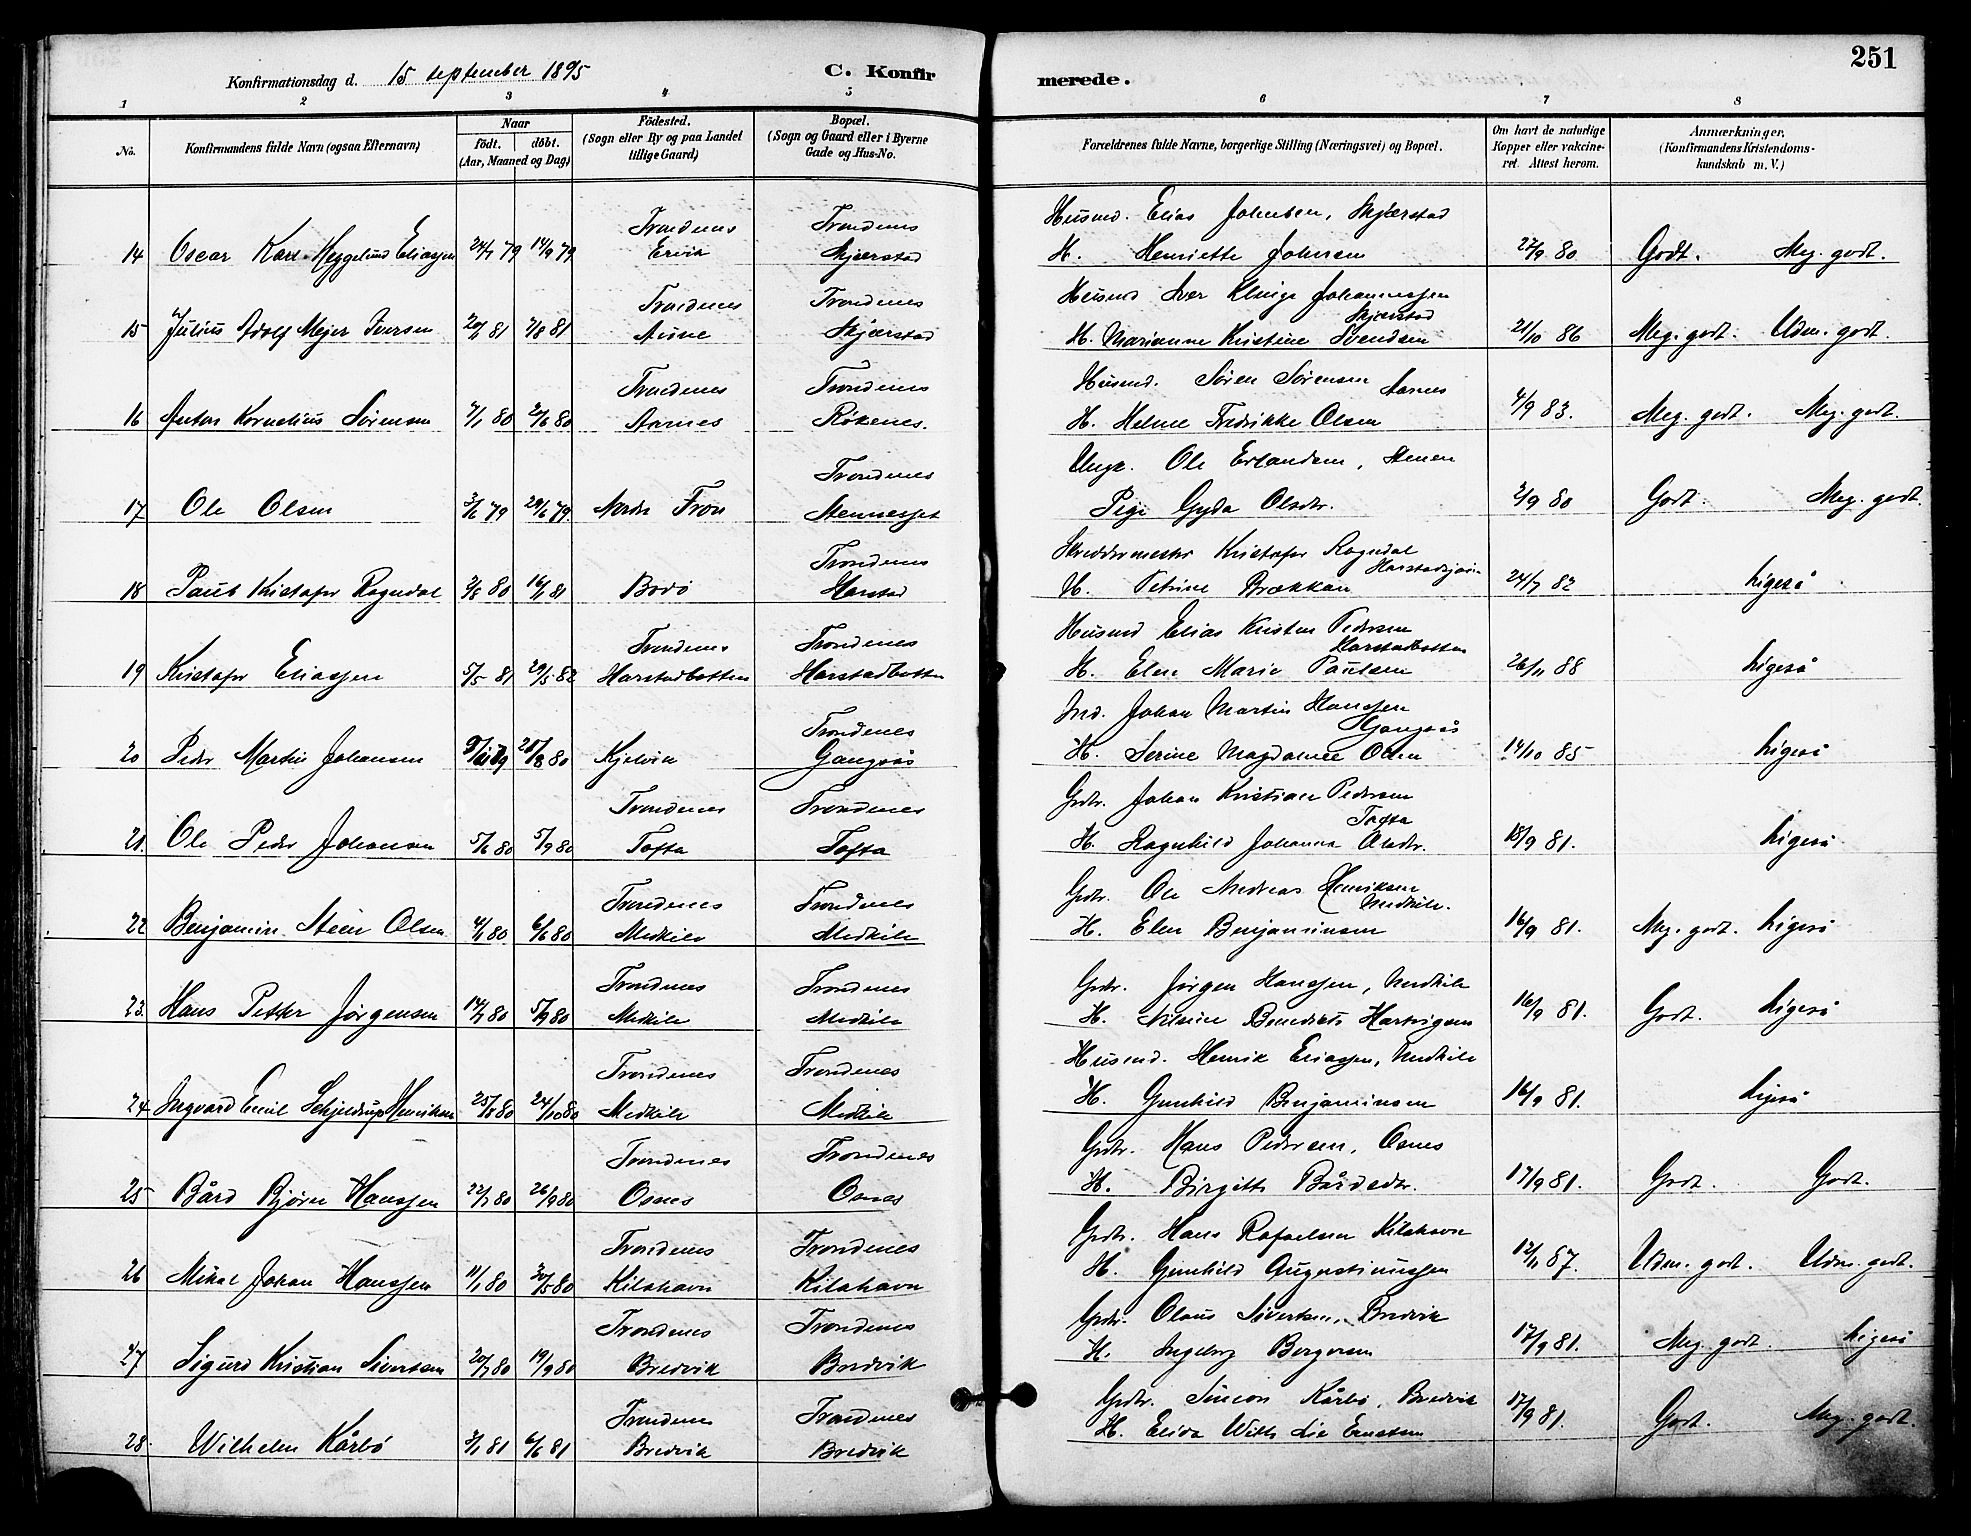 251
Konfirmationsdag d. 15 september 1895 C. Konfirmerede.
1 2 3 4 5 6 7 8
No. Konfirmandens fulde Navn (ogsaa Efternavn) Naar født. døbt. (Aar, Maaned og Dag) Födested. (Sogn eller By og paa Landet tillige Gaard) Bopæl. (Sogn og Gaard eller i Byerne Gade og Hus-No. Forældrenes fulde Navne, borgerlige Stilling (Næringsvei) og Bopæl. Om havt de naturlige Kopper eller vakcineret. Attest herom. Anmærkninger, (Konfirmandens Kristendomskundskab m. V.)
Trondenes Trondenes Husmd. Elias Johnsen, Skjærstad
14 Oscar Karl Heggelund Eliassen 24/7 79 14/9 79 Ervik Skjærstad H. Henriette Johnsen 27/9 80 Godt. Meg. godt.
Trondenes Trondenes Husmd Iver Klinge Johannessen Skjærstad
15 Julius Adolf Mejer Iversen 81 7/8 81 Aune Skjærstad H. Marianne Kristine Svendsen 21/10 86 Meg. godt. Udm. godt.
Trondenes Trondenes Husmd. Søren Sørensen Aarnes
16 Anton Kornelius Sørensen 7/1 80 20/6 80 Aarnes Røkenes. H. Helene Fredrikke Olsen 4/9 83. Meg. godt. Meg. godt.
Trondenes Ungk. Ole Erlandsen, Stenen
17 Ole Olsen 3/6 79 29/6 79. Nordre Fron Mennesset Pige Gyda Olsdtr. 2/9 80 Godt. Meg. godt.
Trondenes Skreddermester Kristofer Rogndal Harstadsjøen
18 Paul Kristofer Rogndal 2/8 80 16/1 81 Bodø Harstad H. Petrine Brækkan 24/7 82 Ligeså
Trondenes Trondenes Husmd Elias Kristen Pedersen Harstadbotten
19 Kristofer Eliassen 5/5 81 29/5 82 Harstadbotten Harstadbotten H. Elen Marie Paulsen 26/11 88 Ligeså
Trondenes Ind. Johan Martin Hanssen Gangsås
20 Peder Martin Johansen 79 25/8 80 Kjelvik Gangsås H. Serine Magdalene Olsen 14/10 85 Ligeså
Trondenes Trondenes Grdbr. Johan Kristian Pedersen Tofta
21. Ole Peder Johansen 5/6 80 5/9 80 Tofta Tofta H. Ragnhild Johanna Olsdtr. 15/9 81. Ligeså
Trondenes Trondenes Grdbr. Ole Andreas Henriksen Medkile.
22 Benjamin Stein Olsen 4/1 80 6/6 80 Medkile Medkile H. Elen Benjaminsen 16/9 81. Meg. godt. Ligeså
Trondenes Trondenes Grdbr. Jørgen Hanssen, Medkile
23. Hans Petter Jørgensen 14/7 80 5/9 80 Medkile Medkile H. Nilsine Benedicte Hartvigsen 16/9 81. Godt. Ligeså
Trondenes Trondenes Husmd. Henrik Eliassen, Medkile
24 Ingvard Emil Schjeldrup Henriksen 25/8 80 24/10 80 Medkile Medkile H. Gunhild Benjaminsen 16/9 81. Ligeså
Trondenes Trondenes Grdbr. Hans Pedersen, Osnes
25 Bård Bjørn Hanssen 22/7 80 26/9 80 Osnes Osnes H. Birgitte Bårdsdtr. 17/9 81. Godt. Godt.
Trondenes Trondenes Grdbr. Hans Rafaelsen Kilshavn
26 Mikal Johan Hanssen 11/1 80 30/5 80 Kilshavn Kilshavn H. Gunhild Augustinussen 12/11 87. Udm. godt. Udm. godt.
Trondenes Trondenes Grdbr. Olaus Sivertsen, Bredvik
27 Sigurd Kristian Sivertsen 20/7 80 19/9 80 Bredvik Bredvik H. Ingeborg Borgersen 17/9 81. Meg. godt. Ligeså
Trondenes Trondenes Grdbr. Simon Kårbø, Bredvik
28. Wilhelm Kårbø 3/1 81 6/6 81 Bredvik Bredvik H. Elida Lie Ernstsen 17/9 81. Godt. Meg. godt.